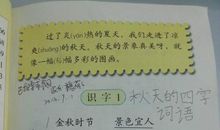 过了炎(yán)热的夏天，我们走进了凉
爽(shuǎng)的秋天。秋天的景象真美呀，就
像一幅(fú)幅多彩的图画。
识字1
秋天的四字
词语
1 金秋时节 景色宜人